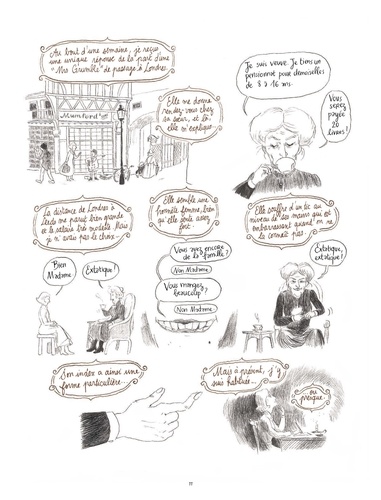 Au bout d'une semaine, je reçus
une unique réponse de la part d'une
"Mrs Grumble" de passage à Londres.
Mumford
Elle me donne
rendez-vous chez
sa sœur, et là
elle m'explique
Je suis veuve. Je tiens un
pensionnat pour demoiselles
de 8 à 16 ans.
Vous
serez
payée
20
Livres!
La distance de Londres à
Leeds me parut bien grande
et le salaire très modeste. Mais
je n'avais pas le choix.
Bien
Madame
Extatique!
Elle semble une
honnête femme, bien
qu'elle joue assez
fort.
Vous avez encore
de la famille?
Non Madame
Vous mangez
beaucoup?
Non Madame
Elle souffre d'un tic au
niveau de ses mains qui est
embarrassant quand on ne
la connaît pas.
Extatique,
extatique!
Son index a ainsi une
forme particulière...
Mais à présent, j'y
suis habituée...
ou
presque.